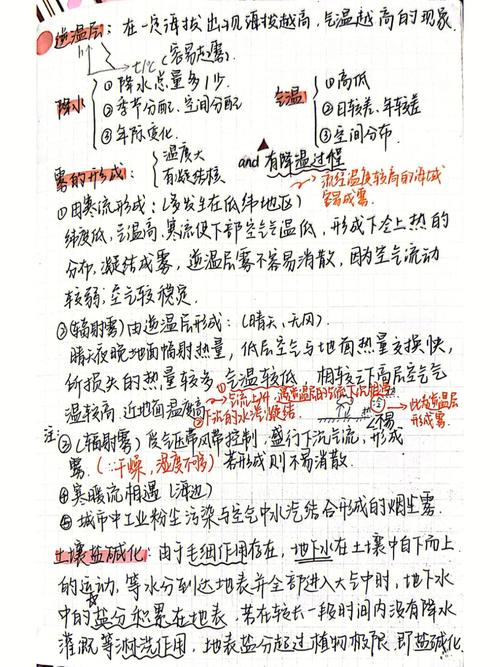 逆温层：在一定海拔出现海拔越高,气温越高的现象.
t/℃ (容易起雾)
降水 ①降水总量多/少.
②季节分配、空间分配
③年际变化.
气温 ①高低
②日较差、年较差
③空间分布.
雾的形成： 湿度大
有凝结核
and 有降温过程
流经温度较高的海域
容易成雾.
①因寒流形成：(多发生在低纬地区)
纬度低,气温高.寒流使下部空气气温低,形成下冷上热的
分布.凝结成雾,逆温层雾不容易消散,因为空气流动
较弱,空气较稳定.
②(辐射雾)由逆温层形成：(晴天、无风)
晴天夜晚地面辐射热量,低层空气与地面热量交换快,
所损失的热量较多,气温较低 相较之下高层空气气
温较高.近地面温度高
气流上升,
下沉的水汽凝结
此逆温层
形成雾.
注：
③(辐射雾)受气压带风带控制,盛行下沉气流,形成
雾(∵干燥,湿度不够)若形成则不易消散.
不易
④寒暖流相遇(海边)
⑤城市中工业粉尘污染与空气中水汽结合形成的烟尘雾.
土壤盐碱化：由于毛细作用存在,地下水在土壤中自下而上
的运动,等水分到达地表并全部进入大气中时,地下水
中的盐分积累在地表,若在较长一段时间内没有降水
灌溉等淋洗作用,地表盐分超过植物极限,即盐碱化